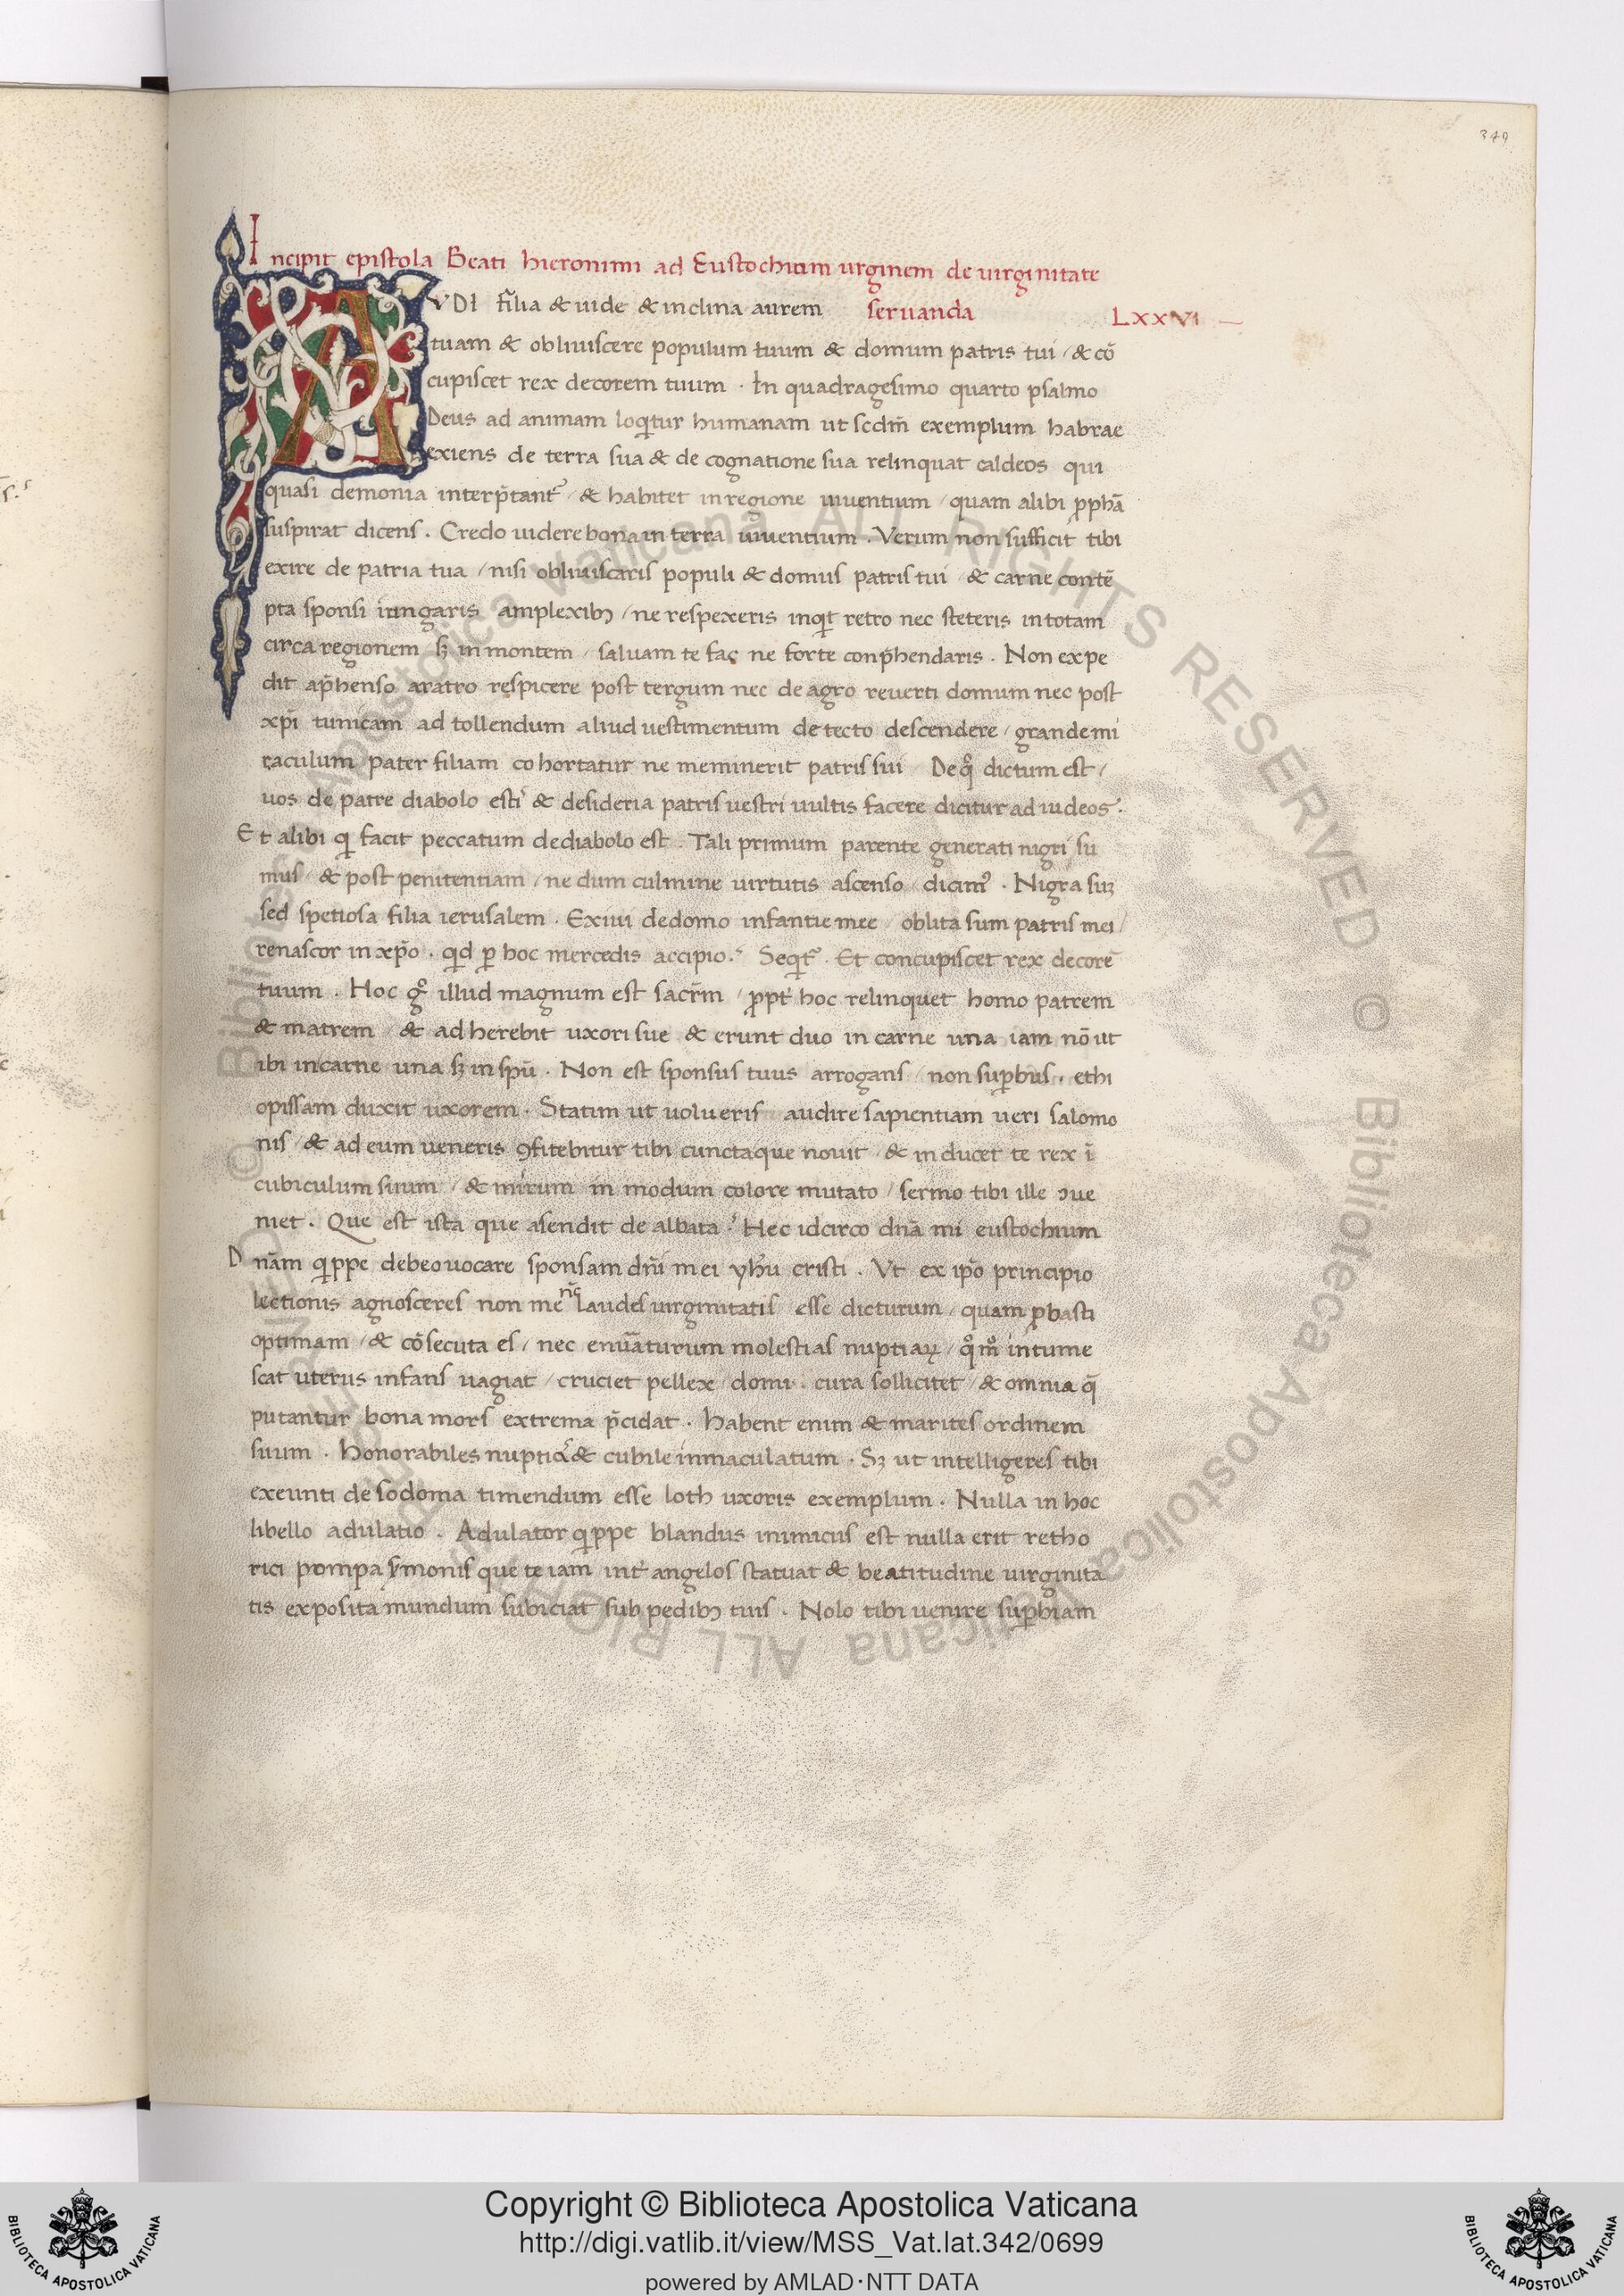 349
Incipit epistola Beati hieronimi ad Eustochium uirginem de uirginitate
AVDI filia & uide & inclina aurem seruanda LXXVI
tuam & obliuiscere populum tuum & domum patris tui / & cō
cupiscet rex decorem tuum · In quadragesimo quarto psalmo
Deus ad animam loqͥtur humanam ut scdm̄ exemplum habrae
exiens de terra sua & de cognatione sua relinquat caldeos qui
quasi demonia interp̄tantᷣ / & habitet in regione uiuentium / quam alibi ꝓphā
suspirat dicens . Credo uidere bona in terra uiuentium . Verum non sufficit tibi
exire de patria tua / nisi obliuiscaris populi & domus patris tui / & carne contē
pta sponsi iungaris amplexibꝫ / ne respexeris inqͥt retro nec steteris in totam
circa regionem sꝫ in montem / saluam te fac ne forte conp̄hendaris . Non expe
dit ap̄henso aratro respicere post tergum nec de agro reuerti domum nec post
xp̄i tunicam ad tollendum aliud uestimentum de tecto descendere / grande mi
raculum pater filiam cohortatur ne meminerit patris sui / De qͦ dictum est /
uos de patre diabolo esti᷒ & desideria patris uestri uultis facere dicitur ad iudeos .
Et alibi qͥ facit peccatum de diabolo est . Tali primum parente generati nigri su
mus / & post penitentiam / ne dum culmine uirtutis ascenso / dicimꝰ . Nigra suꝫ
sed spetiosa filia ierusalem . Exiui de domo infantie mee / oblita sum patris mei /
renascor in xp̄o . qͥd ꝑ hoc mercedis accipio ? Seqͥtᷣ . Et concupiscet rex decorē
tuum . Hoc gͦ illud magnum est sacrm̄ / ꝓpt̄ hoc relinquet homo patrem
& matrem / & adherebit uxori sue & erunt duo in carne una iam nō ut
ibi in carne una sꝫ in spū . Non est sponsus tuus arrogans / non suꝑbus . ethi
opissam duxit uxorem . Statim ut uolueris audire sapientiam ueri salomo
nis / & ad eum ueneris ꝯfitebitur tibi cunctaque nouit / & inducet te rex ī
cubiculum suum / & mirum in modum colore mutato / sermo tibi ille ꝯue
niet . Que est ista que asendit de albata ? Hec idcirco dnā mi eustochium
Dnām qͥppe debeo uocare sponsam dn̄i mei yhū cristi . Vt ex ip̄o principio
lectionis agnosceres non me nc̄ laudes uirginitatis esse dicturum / quam ꝓbasti
optimam / & cōsecuta es / nec enūaturum molestias nuptiaꝝ / qͦmͦ intume
scat uterus infans uagiat / cruciet pellex / domi . cura sollicitet / & omnia q̄
putantur bona mors extrema p̄cidat . habent enim & marites ordinem
suum . honorabiles nuptię & cubile inmaculatum . Sꝫ ut intelligeres tibi
exeunti de sodoma timendum esse loth uxoris exemplum . Nulla in hoc
libello adulatio . Adulator qͥppe blandus inimicus est nulla erit retho
rici pompa s̄monis que te iam int̄ angelos statuat & beatitudine uirginita
tis exposita mundum subiciat sub pedibꝫ tuis . Nolo tibi uenire suꝑbiam
Copyright © Biblioteca Apostolica Vaticana
http://digi.vatlib.it/view/MSS_Vat.lat.342/0699
powered by AMLAD·NTT DATA
BIBLIOTECA APOSTOLICA VATICANA
BIBLIOTECA APOSTOLICA VATICANA
© Biblioteca Apostolica Vaticana ALL RIGHTS RESERVED © Biblioteca Apostolica Vaticana ALL RIGHTS RESERVED